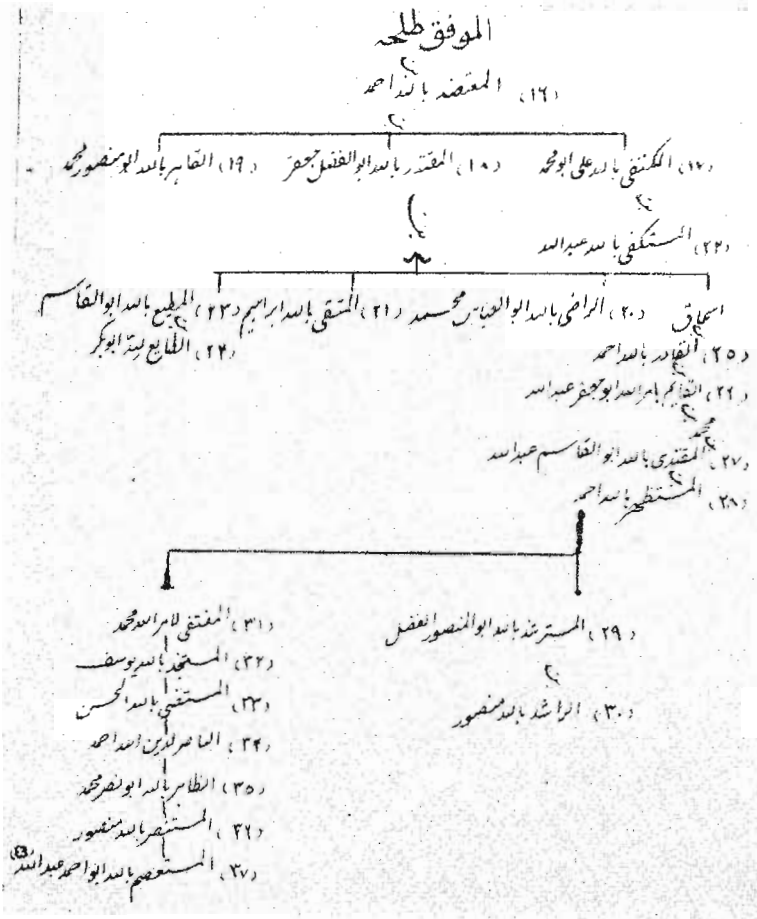 الموفق طلحہ
(۱۶) المعتضد باللہ احمد
(۱۷) المکتفی باللہ علی ابو محمد (۱۸) المقتدر باللہ ابو الفضل جعفر (۱۹) القاہر باللہ ابو منصور محمد
(۲۲) المستکفی باللہ عبداللہ
اسحاق (۲۰) الراضی باللہ ابو العباس محمد (۲۱) المتقی باللہ ابراہیم (۲۳) المطیع باللہ ابو القاسم
(۲۴) الطایع للہ ابوبکر
(۲۵) القادر باللہ احمد
(۲۶) القایم بامر اللہ ابو جعفر عبداللہ
محمد
(۲۷) المقتدی باللہ ابو القاسم عبداللہ
(۲۸) المستظہر باللہ احمد
(۲۹) المسترشد باللہ ابو المنصور الفضل
(۳۰) الراشد باللہ منصور
(۳۱) المقتفی لامر اللہ محمد
(۳۲) المستنجد باللہ یوسف
(۳۳) المستضی باللہ الحسن
(۳۴) الناصر لدین اللہ احمد
(۳۵) الظاہر باللہ ابو نصر محمد
(۳۶) المستنصر باللہ منصور
(۳۷) المستعصم باللہ ابو احمد عبداللہ